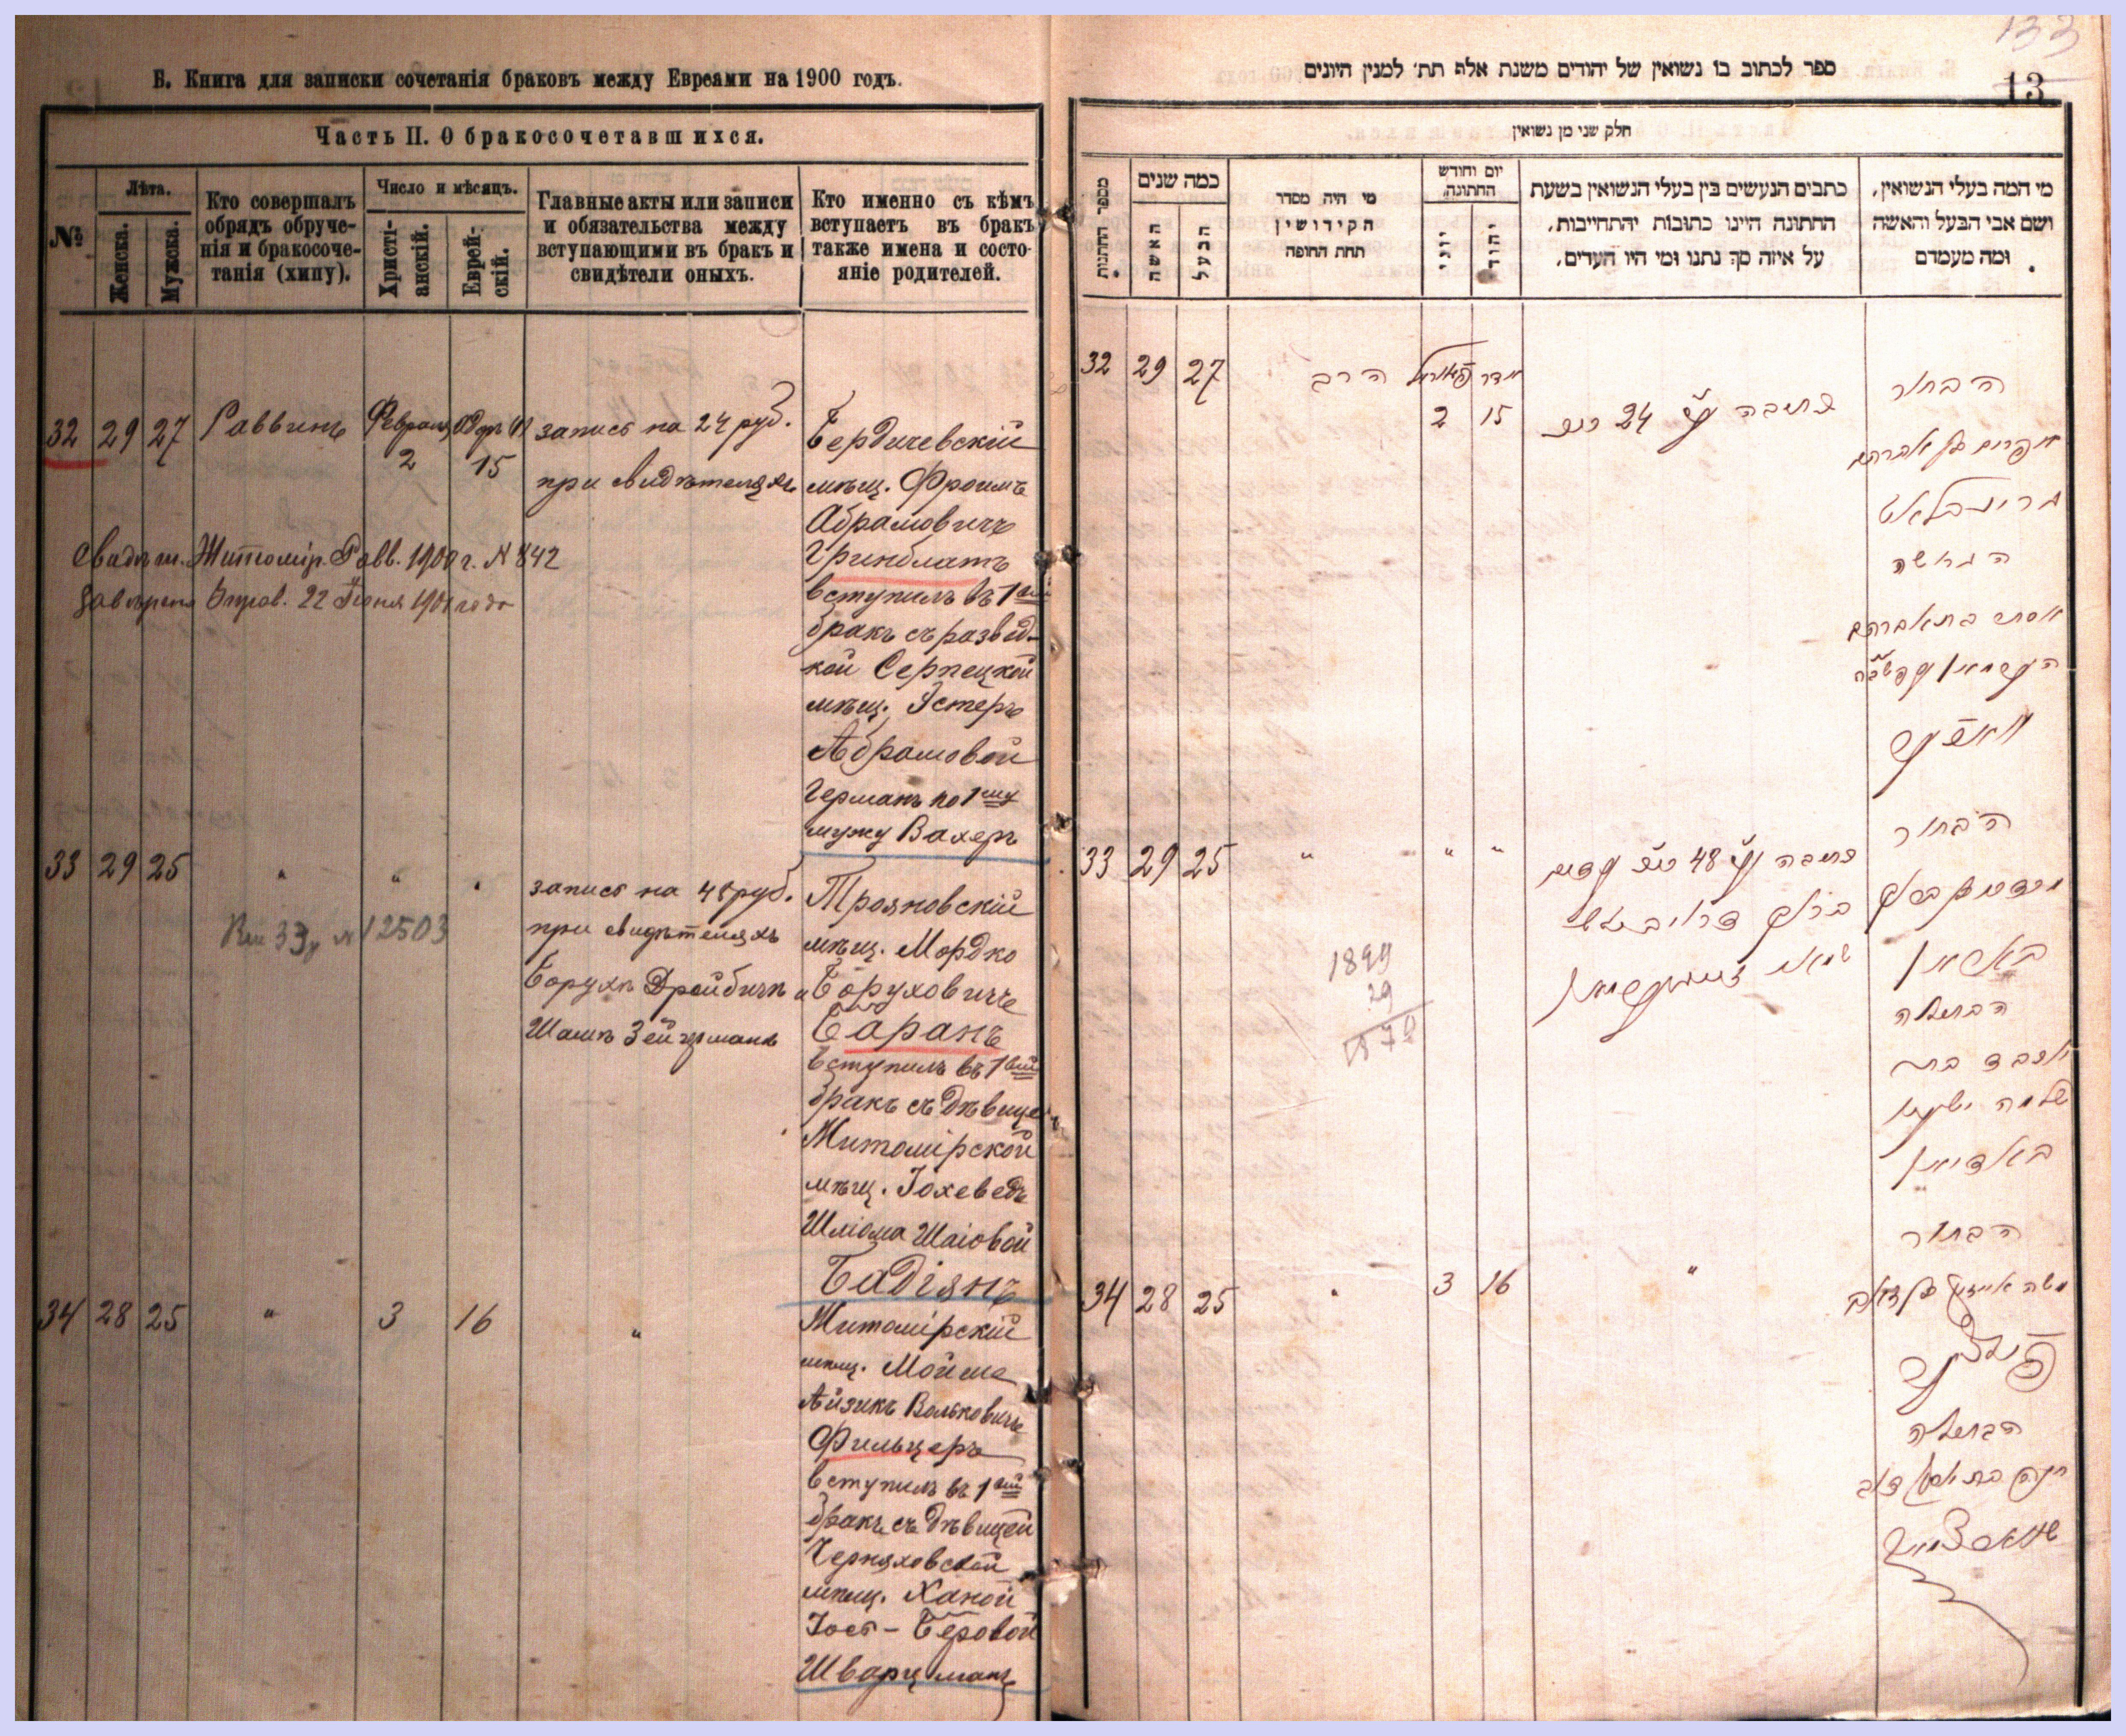 Б. Книга для записки сочетанія браковъ между Евреями на 1900 годъ.
Часть II. О бракосочетавшихся.
№
Лѣта.
Женска.
Мужска.
Кто совершалъ
обрядъ обруче-
нія и бракосоче-
танія (хипу).
Число и мѣсяцъ.
Христі-
анскій.
Еврей-
скій.
Главные акты или записи
и обязательства между
вступающими въ бракъ и
свидѣтели оныхъ.
Кто именно съ кѣмъ
вступаетъ въ бракъ
также имена и состо-
яніе родителей.
32 29 27 Раввинъ Февраля
2 15
запись на 24 руб.
при свидѣтеляхъ
Бердичевскій
мѣщ. Фроимъ
Абрамовичъ
Гринблатъ
вступилъ въ 1вый
бракъ съ развод-
кой Серпецкой
мѣщ. Эстеръ
Абрамовой
Германъ по 1му
мужу Вахеръ
Свидѣт. Житомір. Равв. 1900 г. N 842
22 Іюня 1901 года
33 29 25 " " "
N 12503
запись на 48 руб.
при свидѣтеляхъ
Борухъ Дройбичъ и
Шамъ Зейгерманъ
Трояновскій
мѣщ. Мордко
Боруховичъ
Баранъ
вступилъ въ 1вый
бракъ съ дѣвицей
Житомірской
мѣщ. Іохеведъ
Шліома Шаіовой
Бадіянъ
34 28 25 " 3 16 "
Житомірскій
мѣщ. Мойше
Айзикъ Вольковичъ
Фильцеръ
вступилъ въ 1вый
бракъ съ дѣвицей
Черняховской
мѣщ. Ханой
Іось-Беровой
Шварцманъ
133
13
ספר לכתוב בו נשואין של יהודים משנת אלף תת׳ למנין היונים
חלק שני מן נשואין
מספר החתונות
כמה שנים
האשה
הבעל
מי היה מסדר
הקידושין
תחת החופה
יום וחודש
החתונה
יווני
יהודי
כתבים הנעשים בין בעלי הנשואין בשעת
החתונה היינו כתובות והתחייבות,
על איזה סך נתנו ומי היו העדים.
מי המה בעלי הנשואין,
ושם אבי הבעל והאשה
ומה מעמדם
32 29 27 הרב
2 15
כתובה 24
הבחור
אפרים בן אברהם
גרינבלאט
הגרושה
אסתר בת אברהם
33 29 25 " " "
כתובה 48
הבחור
מרדכי בן ברוך
באראן
הבתולה
יוכבד בת
שלמה ישעי׳
באדיאן
1899
29
1870
34 28 25 " 3 16 "
הבחור
משה אייזיק בן זאב
פילצער
הבתולה
חנה בת יוסף דוב
שווארצמאן